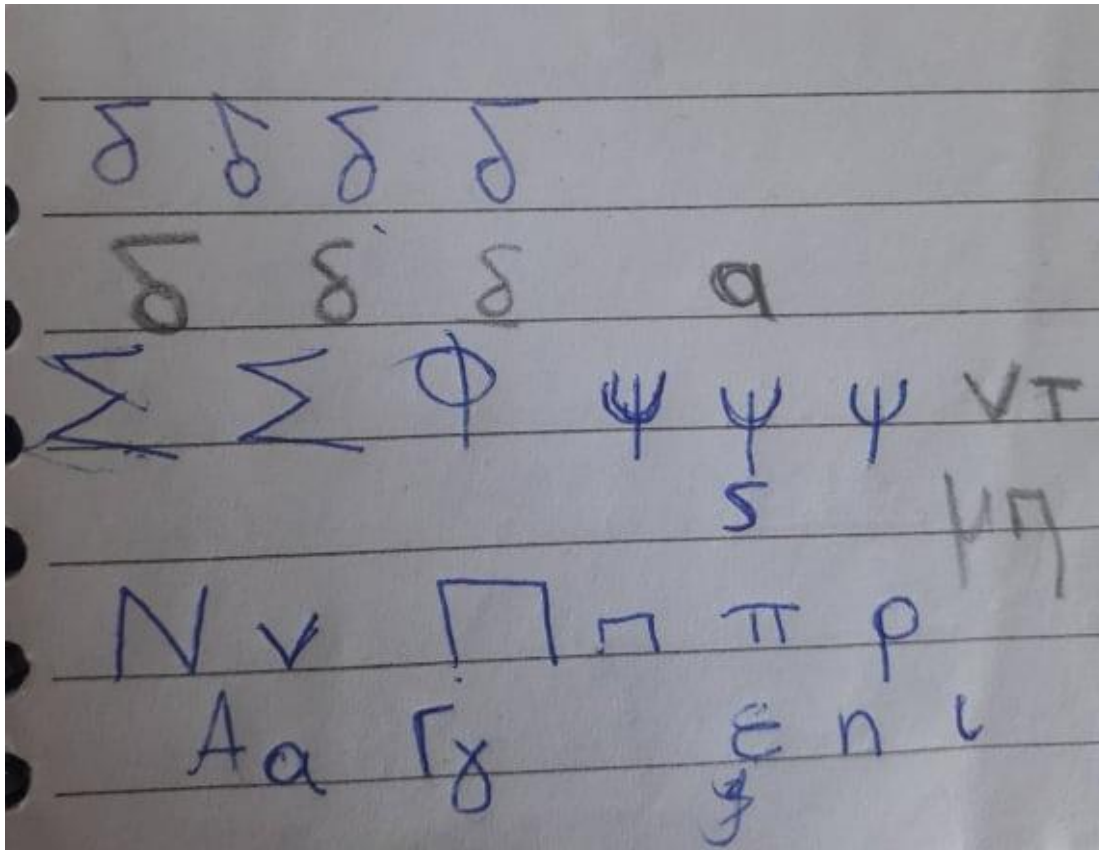 δ δ δ δ
δ δ δ α
Σ Σ Φ Ψ Ψ Ψ ν τ
ς μ η
Ν ν Π π π ρ
Α α Γ γ ε η ι